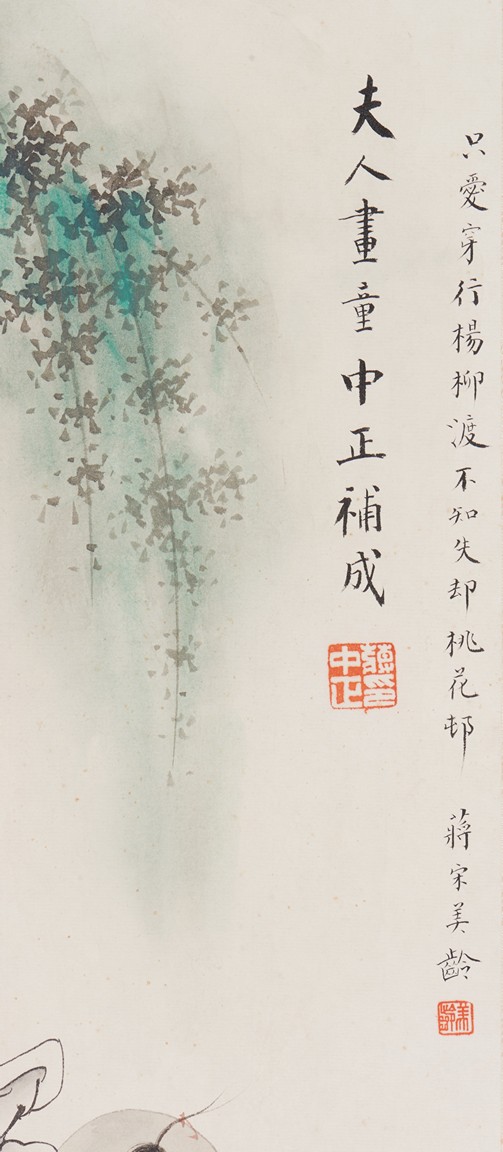 只愛穿行楊柳渡不知失却桃花邨 蔣宋美齡
美齡
夫人畫童中正補成
蔣印中正